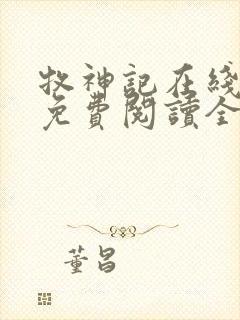 牧神記在綫
免費閱讀全
董昌